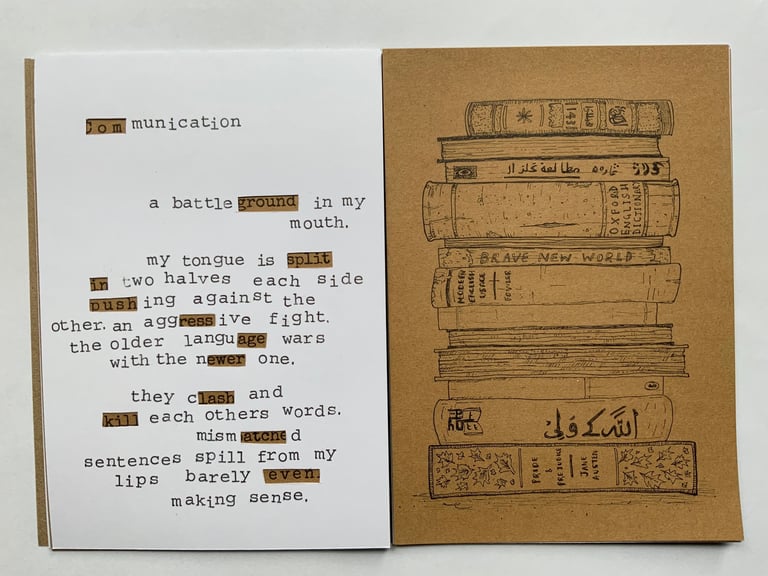 Communication
a battleground in my
mouth.
my tongue is split
in two halves each side
pushing against the
other. an aggressive fight.
the older language wars
with the newer one.
they clash and
kill each others words.
mismatched
sentences spill from my
lips barely even.
making sense.
1431
مطالعهٔ
OXFORD
ENGLISH
DICTIONARY
BRAVE NEW WORLD
MODERN
ENGLISH
USAGE
FOWLER
اللہ کے ولی
PRIDE
PREJUDICE
JANE
AUSTEN